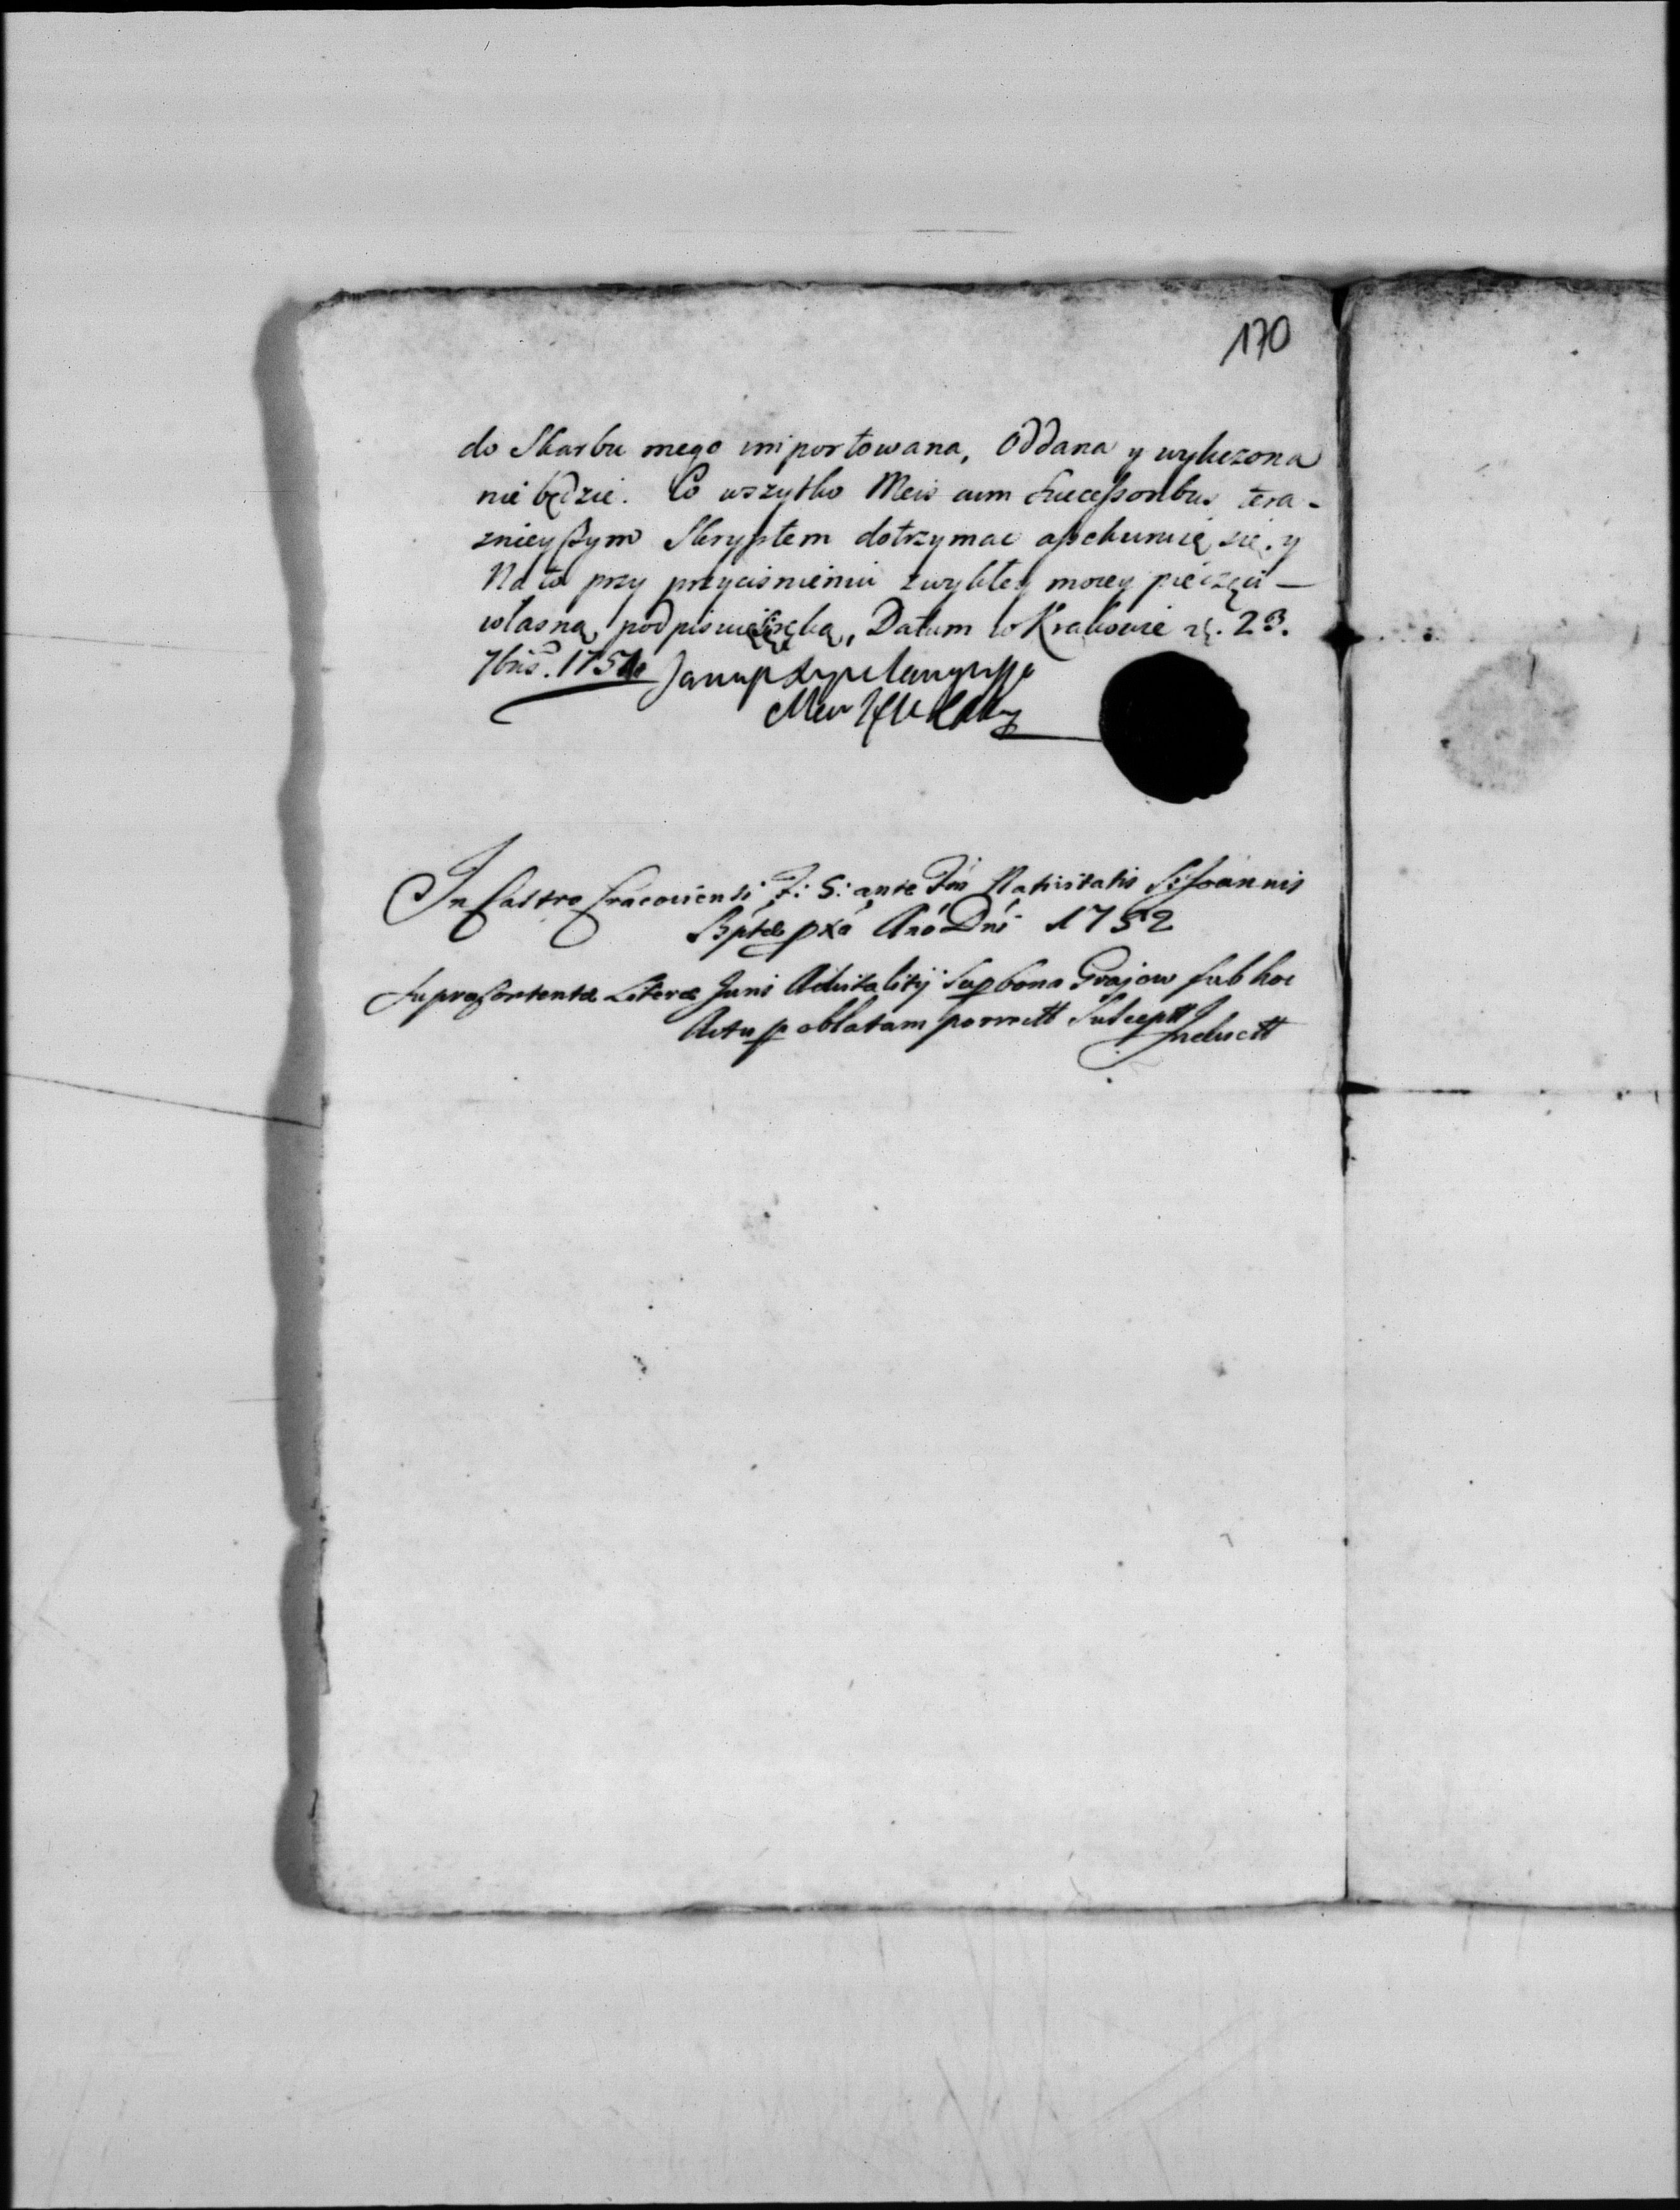 170
do Skarbu mego importowana, Oddana y wyliczona
nie będzie. Co wszytko Meis cum Successoribus tera-
znieyszym Skryptem dotrzymac assekuruię się. y
Na to przy przyciśnieniu zwykłey moiey pieczęci
własną podpisuięsię ręką, Datum w Krakowie 23.
7bris. 1751
In Castro Cracoviensi F: 5: ante Ftm Nativitatis S: Joannis
Bptae pxa Ano Dni 1752
Supra contentae Literae Juris Advitalitij Sup bona Grajow sub hoc
Actu p oblatam porrectt Susceptt
Inductt